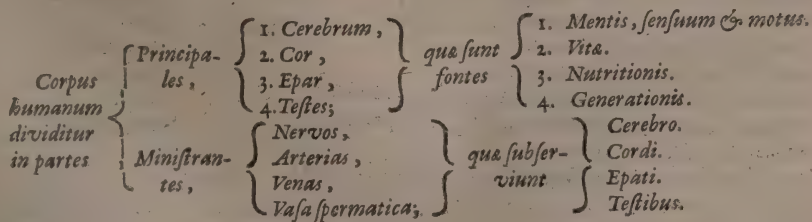 Corpus
humanum
dividitur
in partes
Principa-
les,
1. Cerebrum,
2. Cor,
3. Epar,
4. Testes;
quæ sunt
fontes
1. Mentis, sensuum & motus.
2. Vitæ.
3. Nutritionis.
4. Generationis.
Ministran-
tes,
Nervos,
Arterias,
Venas,
Vasa spermatica;
quæ subser-
viunt
Cerebro.
Cordi.
Epati.
Testibus.